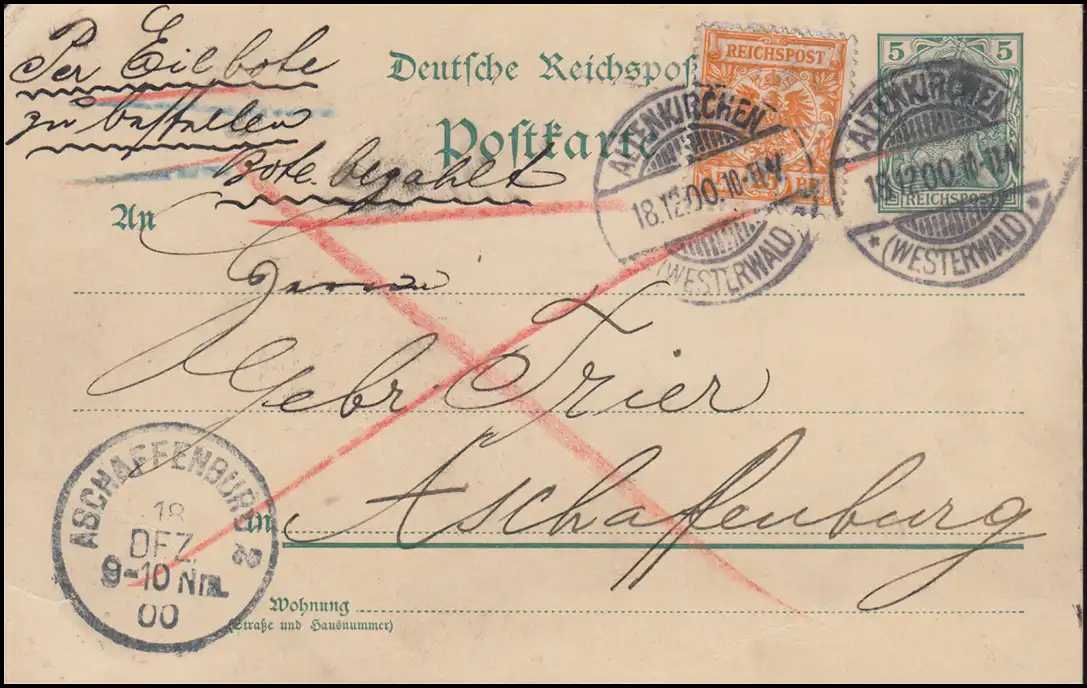 Per Eilbote
zu bestellen
Bote bezahlt
Deutsche Reichspost
Postkarte
REICHSPOST
5 5
REICHSPOST
ALTENKIRCHEN
18.12.00.10-11.V.
* (WESTERWALD)
ALTENKIRCHEN
18.12.00.10-11.V.
* (WESTERWALD) *
An
Herren
Gebr. Trier
in Aschaffenburg
ASCHAFFENBURG 2
18
DEZ.
9-10 Nm.
00
Wohnung
(Straße und Hausnummer)